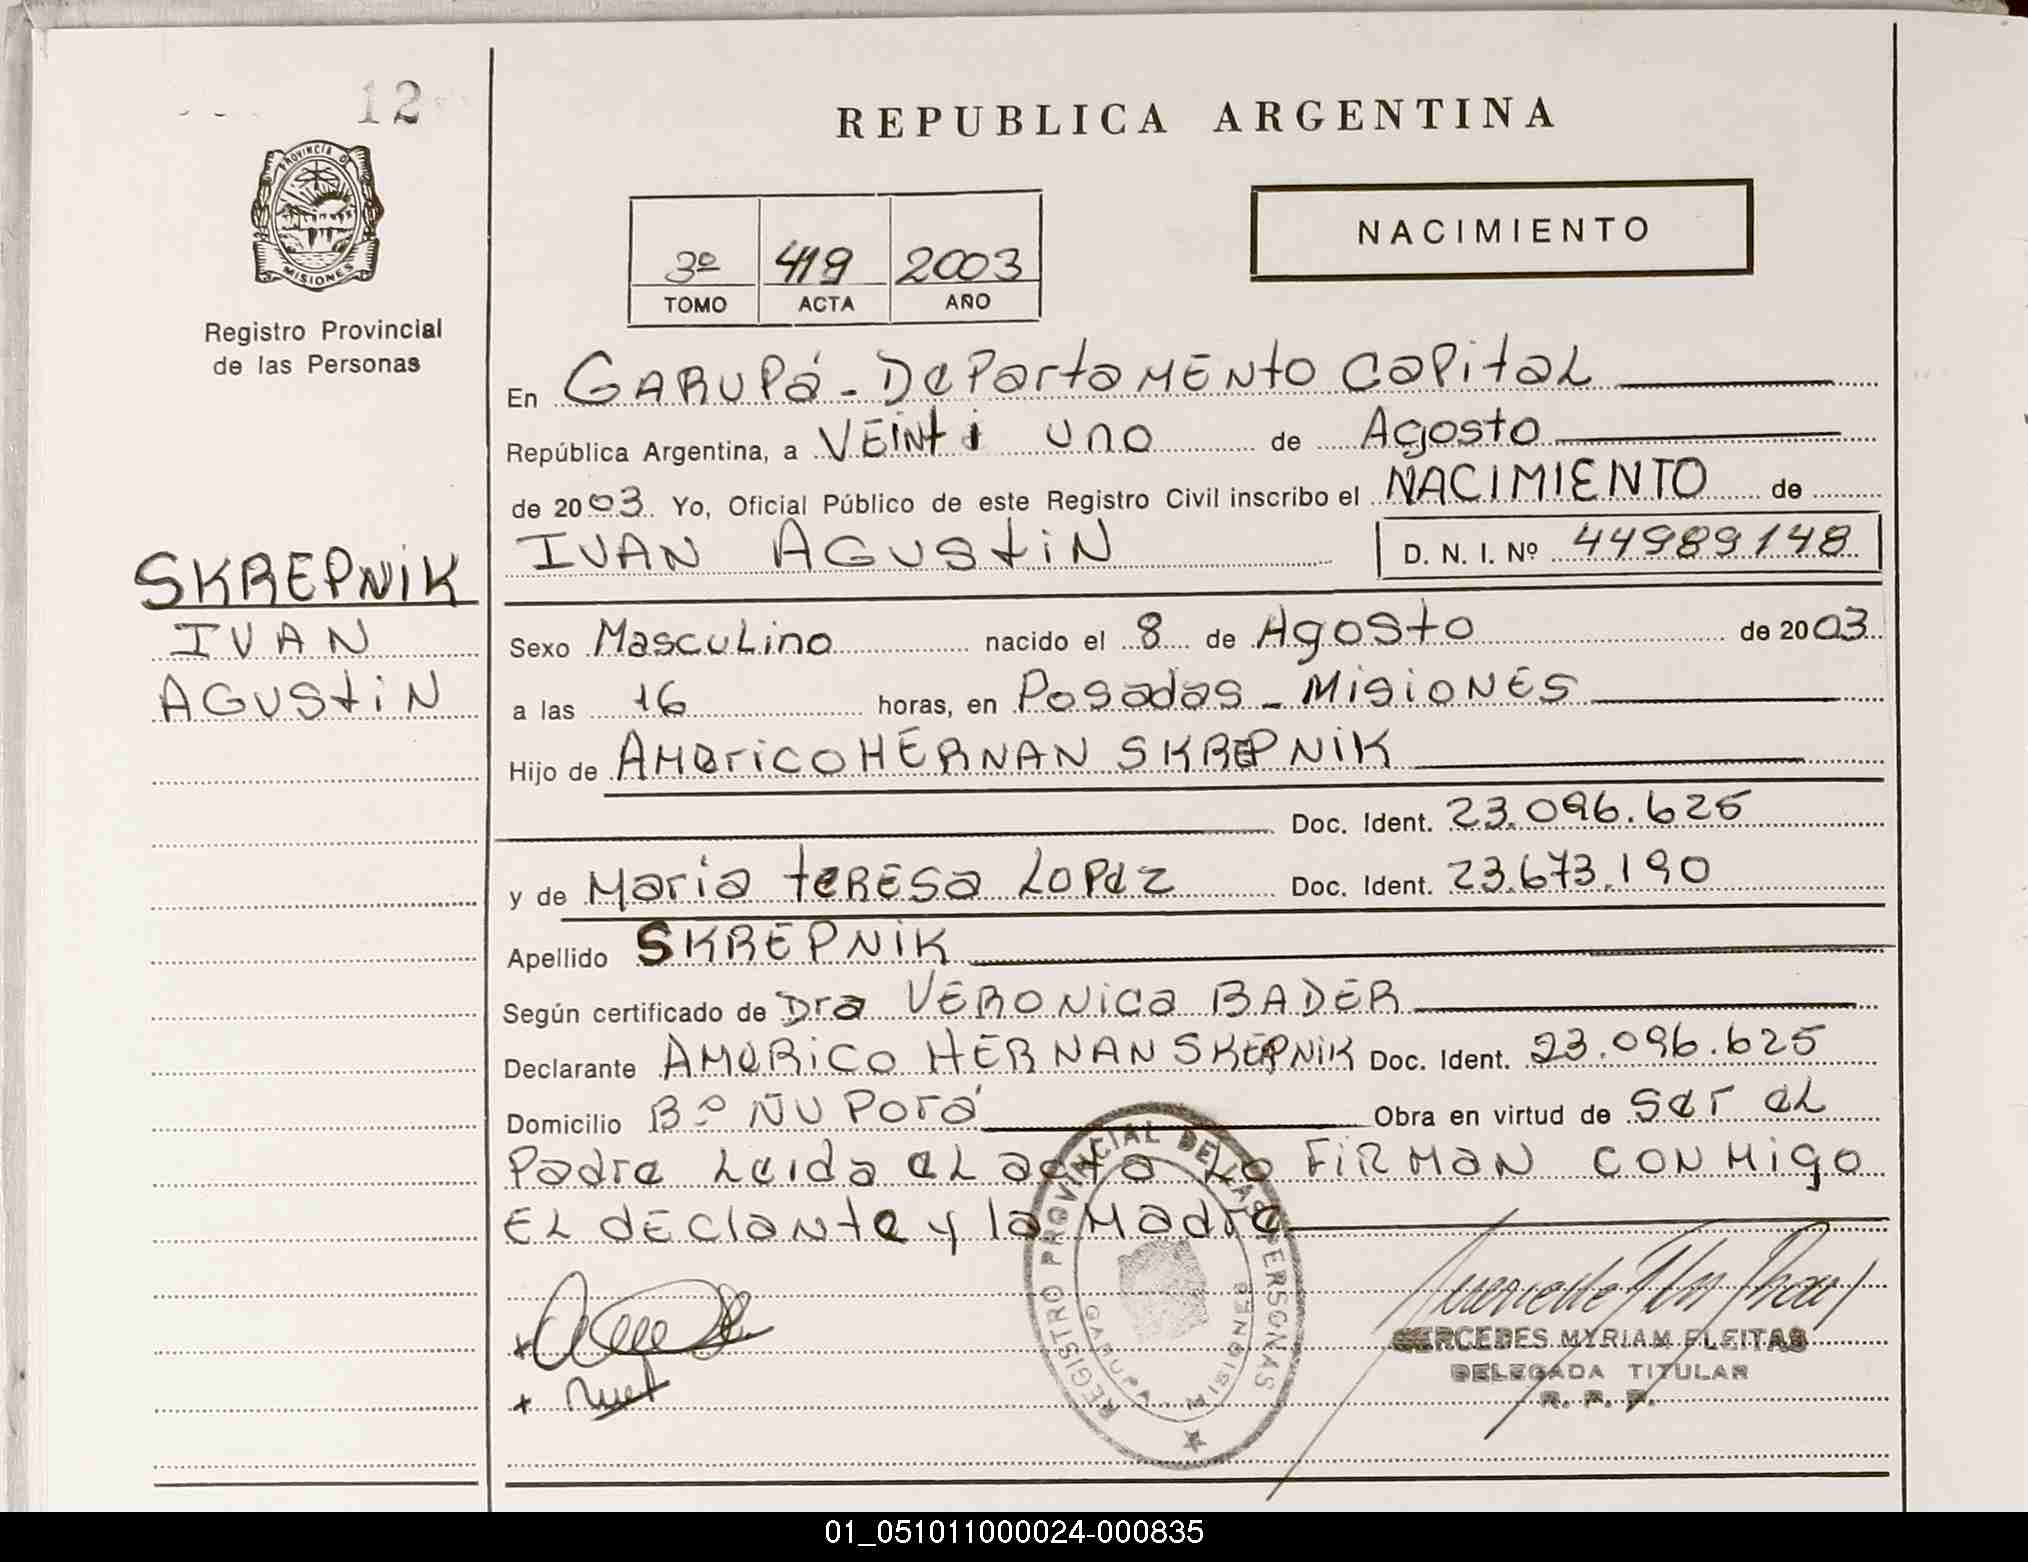 12
PROVINCIA D
MISIONES
Registro Provincial
de las Personas
SKREPNIK
IVAN
AGUSTIN
REPUBLICA ARGENTINA
NACIMIENTO
3º 419 2003
TOMO ACTA AÑO
En GARUPá - DePartaMENto CaPitaL
República Argentina, a VEinti uno de Agosto
de 2003 Yo, Oficial Público de este Registro Civil inscribo el NACIMIENTO de
IVAN AGUStiN D. N. I. Nº 44989148
Sexo MascuLino nacido el 8 de Agosto de 2003
a las 16 horas, en Posadas - MisioNES
Hijo de AMericO HERNAN SKREPNIK
Doc. Ident. 23.096.625
y de Maria teRESa LOPez Doc. Ident. 23.673.190
Apellido SKREPNIK
Según certificado de Dra VERONica BADER
Declarante AMeRiCO HERNAN SKEPNIK Doc. Ident. 23.096.625
Domicilio Bº ÑU Porá Obra en virtud de Ser eL
Padre Leida eL acta Lo FiRMaN CONMigo
EL dEClaNte y la Madre
REGISTRO PROVINCIAL DE LAS PERSONAS
GARUPA - MISIONES
MERCEDES MYRIAM FLEITAS
DELEGADA TITULAR
R. P. P.
01_051011000024-000835